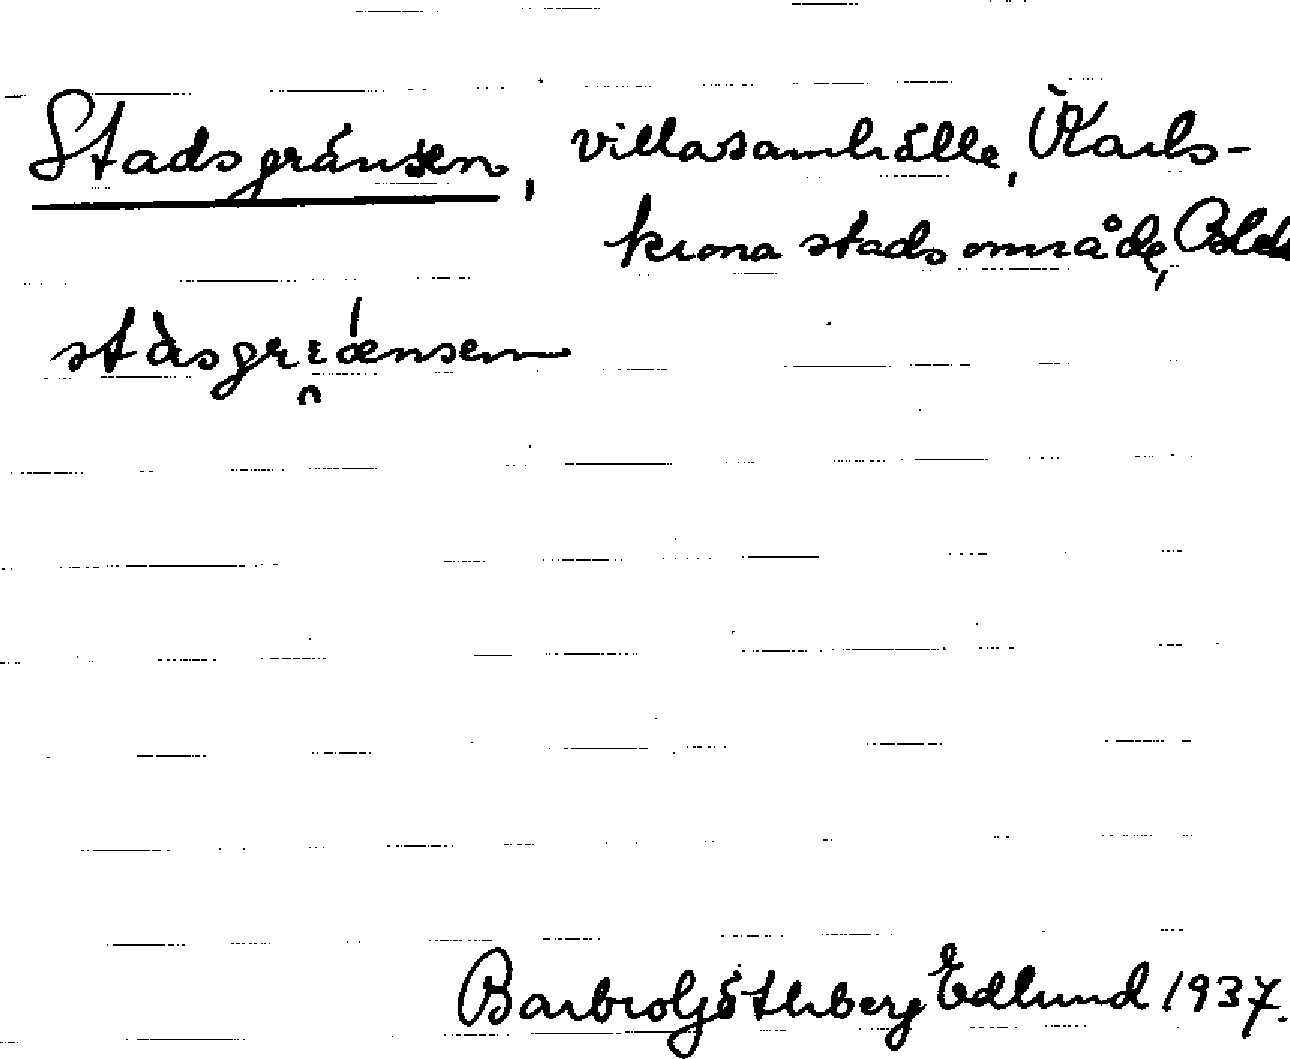 Stadsgränsen, villasamhälle, Karls-
krona stadsområde, Blek
stàsgrænsen
Barbro Göthberg Edlund 1937.